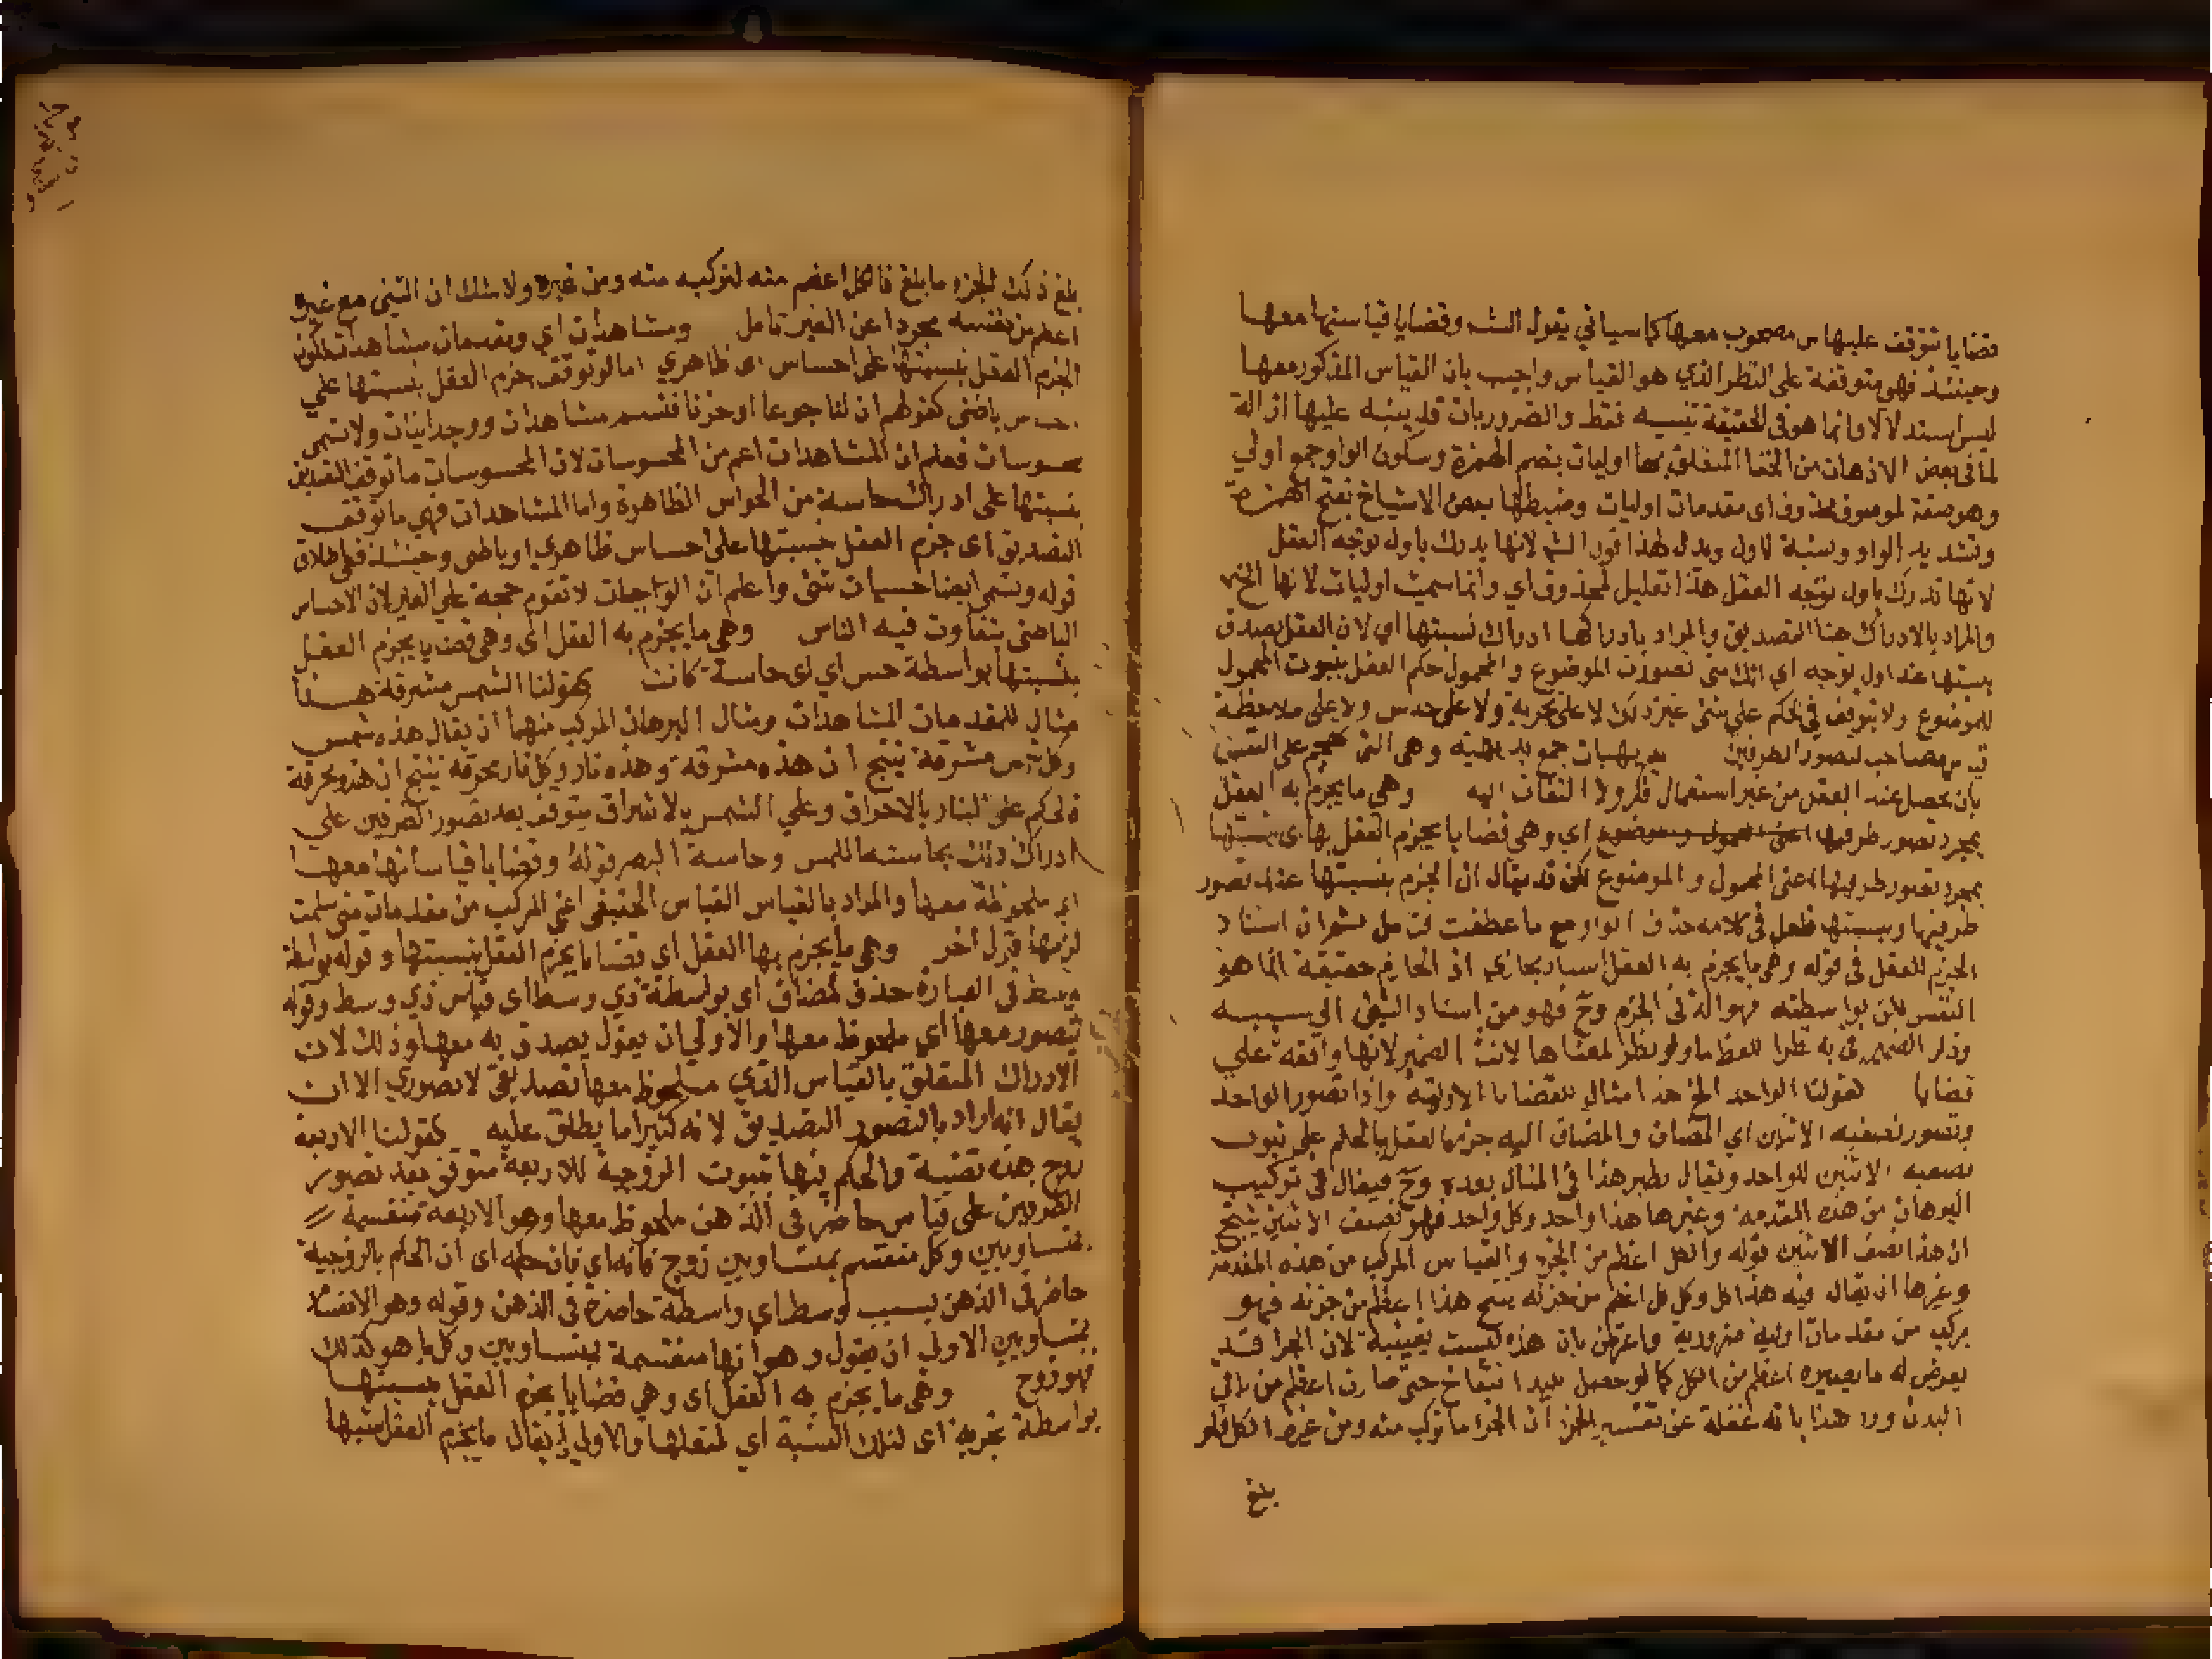 قضايا تتوقف على قياس مصحوب معها كما سياتي يقول الشه وقضايا قياستها معها
وحينئذ فهي متوقفة على النظر الذي هو القياس واجيب بان القياس المذكور معها
ليس استدلالا وانما هو في الحقيقة تنبيه فقط والضروريات قد ينبه عليها ازالة
لما في بعض الاذهان من الخفا المتعلق بها اوليات بضم الهمزة وسكون الواو جمع اولي
وهو صفة لموصوف محذوف اى مقدمات اوليات وضبطها بعض الاشياخ بفتح الهمزة
وتشديد الواو ونسبة لاول ويدل لهذا قول الشه لانها تدرك باول توجه العقل
لانها تدرك باول توجه العقل هذا تعليل لمحذوف اي وانما سميت اوليات لانها الخ
والمراد بالادراك هنا التصديق والمراد بادراكها ادراك نسبتها اي لان العقل يصدق
بنسبتها عند اول توجه اي انك متى تصورت الموضوع والمحمول حكم العقل بثبوت المحمول
للموضوع ولا يتوقف في الحكم على شئ غير ذلك لا على تجربة ولا على حدس ولا على ملاحظة
قياس مصاحب لتصور الطرفين بديهيات جمع بديهية وهي التي تهجم على النفس
بان يحصل عند العقل من غير استعمال فكر ولا التفات اليه وهي ما يجزم به العقل
بمجرد تصور طرفيها اي وهي قضايا يجزم العقل بها اى بنسبتها
بمجرد تصور طرفيها اعني المحمول والموضوع لكن قد يقال ان الجزم بنسبتها عند تصور
طرفيها وبنسبتها فلعل في كلامه حذف الواو مع ما عطفت تامل ثم ان اسناد
الجزم للعقل في قوله وهي ما يجزم به العقل اسناد مجازي اذ الجازم حقيقة انما هو
النفس لكن بواسطته فهو الة في الجزم وح فهو من اسناد الشئ الى سببه
وذكر الضمير في به نظرا للفظ ما ولو نظر لمعناها لانث الضمير لانها واقعة على
قضايا كقولنا الواحد الخ هذا مثال للقضايا الاولية واذا تصور الواحد
وتصور نصفية الاثنين اي المضاف والمضاف اليه جزم العقل بالحكم على ثبوت
نصفية الاثنين للواحد ويقال نظير هذا في المثال بعده وح فيقال في تركيب
البرهان من هذه المقدمة وغيرها هذا واحد وكل واحد فهو نصف الاثنين ينتج
ان هذا نصف الاثنين قوله والكل اعظم من الجزء والقياس المركب من هذه المقدمة
وغيرها ان يقال فيه هذا كل وكل كل اعظم من جزئه ينتج هذا اعظم من جزئه فهو
مركب من مقدمات اولية ضرورية واعترض بان هذه ليست يقينية لان الجزا قد
يعرض له ما يصيره اعظم من الكل كما لو حصل لليد انتفاخ حتى صارت اعظم من باقي
البدن ورد هذا بانه غفلة عن تفسير الجزء اذ الجزا ما تركب منه ومن غيره الكل فلو
بلغ
بلغ ذلك الجزء ما بلغ فالكل اعظم منه لتركبه منه ومن غيره ولا شك ان الشئ مع غيره
اعظم من نفسه مجردا عن الغير تامل ومشاهدات اي ومقدمات مشاهدات لكون
الجزم العقل بنسبتها على احساس اى ظاهري اما لو توقف جزم العقل بنسبتها على
احساس باطني كقولهم ان لنا جوعا او حزنا فتسمى مشاهدات ووجدانيات ولا تسمى
محسوسات فعلم ان المشاهدات اعم من المحسوسات لان المحسوسات ما توقف التصديق
بنسبتها على ادراك حاسة من الحواس الظاهرة واما المشاهدات فهي ما توقف
التصديق اى جزم العقل بنسبتها على احساس ظاهري او باطني وحينئذ ففي اطلاق
قوله وتسمى ايضا حسيات شئ واعلم ان الوجدانيات لا تقوم حجة على الغير لان الاحساس
الباطني يتفاوت فيه الناس وهي ما يجزم به العقل اى وهي قضايا يجزم العقل
بنسبتها بواسطة حس اي اى حاسة كانت كقولنا الشمس مشرقة هذا
مثال للمقدمات المشاهدات ومثال البرهان المركب منهما ان يقال هذه شمس
وكل شمس مشرقة ينتج ان هذه مشرقة وهذه نار وكل نار محرقة ينتج ان هذه محرقة
فالحكم على النار بالاحراق وعلى الشمس بالاشراق يتوقف بعد تصور الطرفين على
ادراك ذلك بحاسة اللمس وحاسة البصر قوله وقضايا قياساتها معها
اي ملحوظة معها والمراد بالقياس القياس الحقيقي اعني المركب من مقدمات متى سلمت
لزمها قول اخر وهي ما يجزم بها العقل اي قضايا يجزم العقل بنسبتها وقوله بواسطة
وسط في العبارة حذف مضاف اى بواسطة ذي وسط اى قياس ذي وسط وقوله
تتصور معها اي ملحوظ معها والاولى ان يقول يصدق به معها وذلك لان
الادراك المتعلق بالقياس الذي ملحوظ معها تصديقي لا تصوري الا ان
يقال انه اراد بالتصور التصديق لانه كثيرا ما يطلق عليه كقولنا الاربعة
زوج هذه قضية والحكم فيها بثبوت الزوجية للاربعة متوقف بعد تصور
الطرفين على قياس حاضر في الذهن ملحوظ معها وهو الاربعة منقسمة
بمتساويين وكل منقسم بمتساويين زوج فانه اي فان حكمه اى ان الحكم بالزوجية
حاضر في الذهن بسبب وسط اي واسطة حاضرة في الذهن وقوله وهو الانقسام
بمتساويين الاولى ان يقول وهو انها منقسمة بمتساويين وكل ما هو كذلك
فهو زوج وهي ما يجزم به العقل اى وهي قضايا يجزم العقل بنسبتها
بواسطة تجربة اى لتلك النسبة اي لمتعلقها والاولى ان يقال ما يجزم العقل بنسبتها